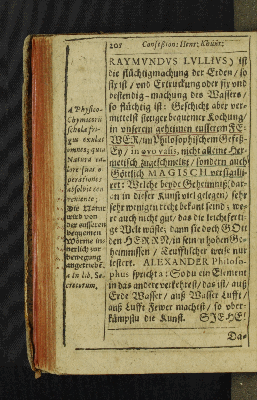 208 Confession: Henr: Khunr:
RAYMVNDVS LVLLIVS) ist
die flüchtigmachung der Erden / so
bestendig-machung des Wassers /
so flüchtig ist: Geschicht aber ver-
mittelst stetiger bequemer Kochung /
in vnserem geheimen eusserem FE-
WER / im Philosophischem
Ey / in ovo vitis, nicht alleine Her-
metisch / sondern auch
Göttlich MAGISCH versigili-
ert: Welche beyde Geheimnis (dar-
an in dieser Kunst viel gelegen) sehr
sehr wenigen recht bekant seind; we-
re auch nicht gut / das die leichtferti-
ge Welt wüste; dann sie doch GOtt
den HERRN / in seinen hohen Ge-
heimnissen / Teufflischer weise nur
lestert. ALEXANDER Philoso-
phus spricht: So du ein Element
in das andere verkehrest / das ist / auß
Erde Wasser / auß Wasser Lufft /
auß Lufft Fewer machest / so
die Kunst. SIEHE!
Da-
a Physico-
Chymicorũ
schola fri-
gus exulat
omnes; quia
Natura ca-
lore suas o-
perationes
absolvit
Die Natur
wird von
der eusseren
bequemen
Wörme in-
nerlich zur
bewegung
angetrieben.
a in lib. Se-
cretorum,